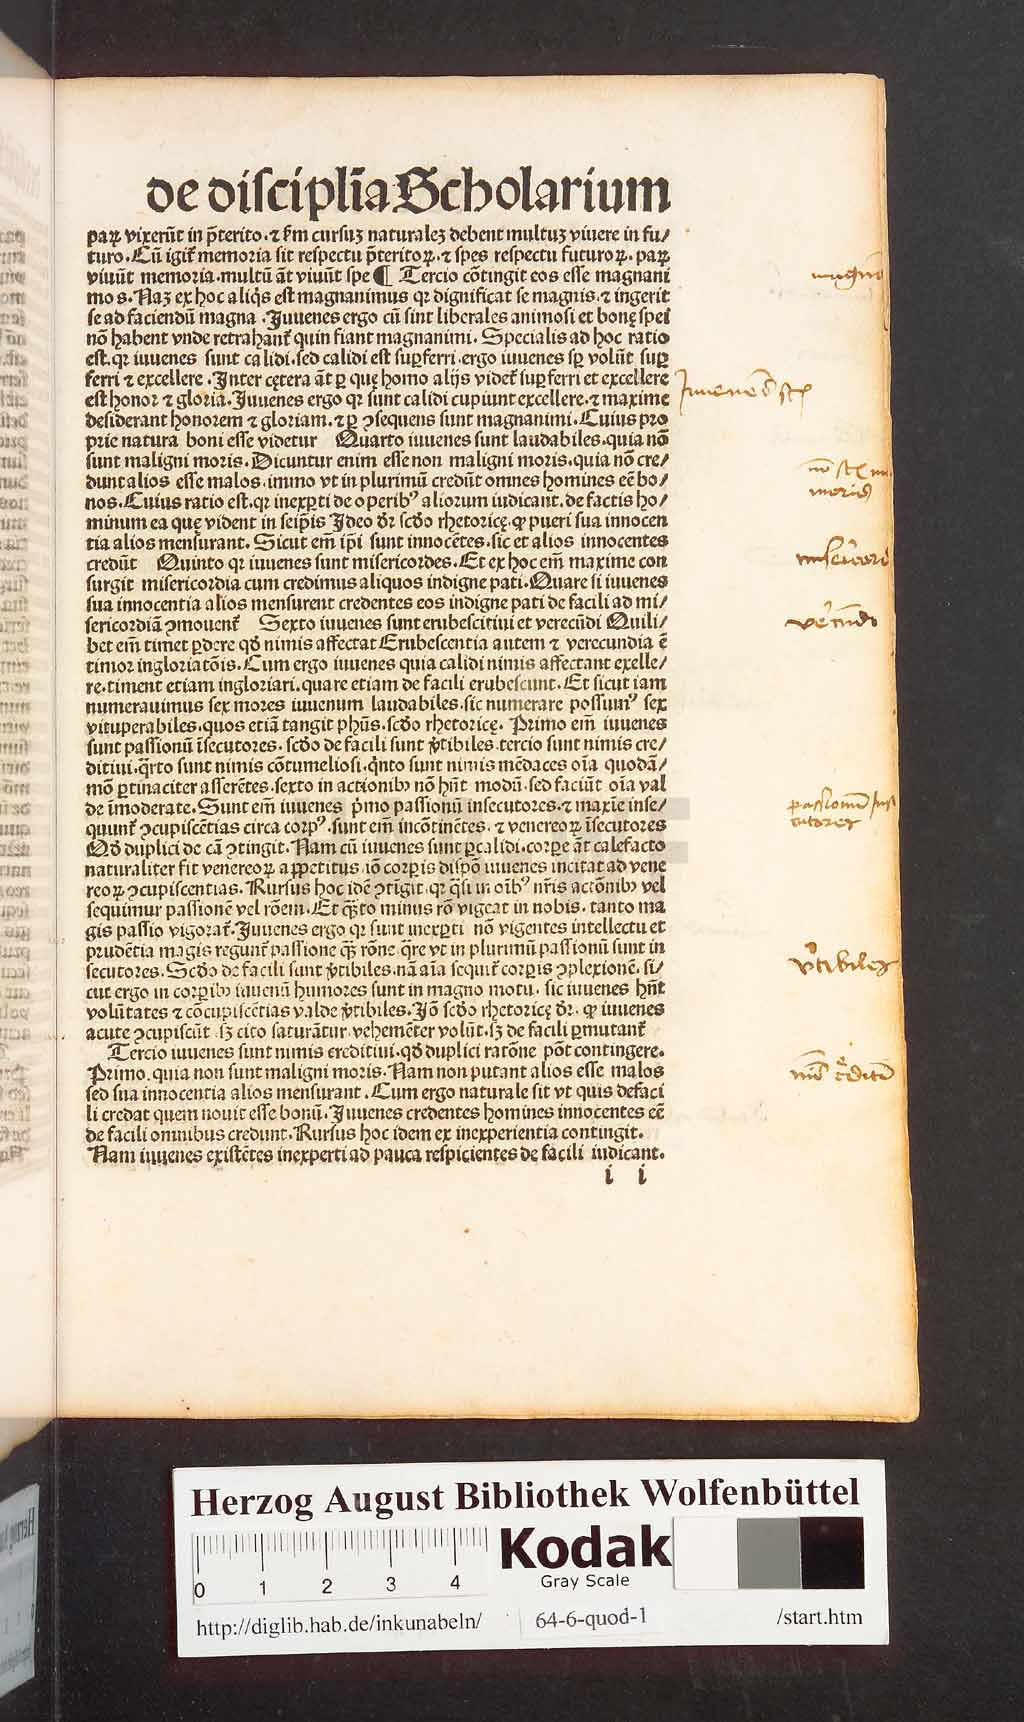 de disciplīa Scholarium
paꝝ vixerūt in p̄terito. ⁊ ẜm cursuꝫ naturaleꝫ debent multuꝫ viuere in fu/
turo. Cū igit̄ memoria sit respectu p̄teritoꝝ. ⁊ spes respectu futuroꝝ. paꝝ
viuūt memoria. multū āt viuūt spe ¶ Tercio cōtingit eos esse magnani
mos. Naꝫ ex hoc aliq̄s est magnanimus qꝛ dignificat se magnis. ⁊ ingerit
se ad faciendū magna. Iuuenes ergo cū sint liberales animosi et bonę spei
nō habent vnde retrahant̄ quin fiant magnanimi. Specialis ad hoc ratio
est. qꝛ iuuenes sunt calidi. sed calidi est suꝑferri. ergo iuuenes sꝑ volūt suꝑ
ferri ⁊ excellere. Inter cętera āt ꝑ quę homo alijs videt̄ suꝑferri et excellere
est honor ⁊ gloria. Iuuenes ergo qꝛ sunt calidi cupiunt excellere. ⁊ maxime
desiderant honorem ⁊ gloriam. ⁊ ꝑ ꝯsequens sunt magnanimi. Cuius pro
prie natura boni esse videtur Quarto iuuenes sunt laudabiles. quia nō
sunt maligni moris. Dicuntur enim esse non maligni moris. quia nō cre/
dunt alios esse malos. immo vt in plurimū credūt omnes homines eē bo/
nos. Cuius ratio est. qꝛ inexꝑti de operibꝰ aliorum iudicant. de factis ho/
minum ea quę vident in seip̄is Ideo dr̄ scd̄o rhetoricę. ꝙ pueri sua innocen
tia alios mensurant. Sicut em̄ ip̄i sunt innocētes. sic et alios innocentes
credūt Quinto qꝛ iuuenes sunt misericordes. Et ex hoc em̄ maxime con
surgit misericordia cum credimus aliquos indigne pati. Quare si iuuenes
sua innocentia alios mensurent credentes eos indigne pati de facili ad mi/
sericordiā ꝯmouent̄ Sexto iuuenes sunt erubescitiui et verecūdi Quili/
bet em̄ timet ꝑdere qd̄ nimis affectat Erubescentia autem ⁊ verecundia ē
timor ingloriatōis. Cum ergo iuuenes quia calidi nimis affectant exelle/
re. timent etiam ingloriari. quare etiam de facili erubescunt. Et sicut iam
numerauimus sex mores iuuenum laudabiles. sic numerare possumꝰ sex
vituperabiles. quos etiā tangit ph̄us. scd̄o rhetoricę. Primo em̄ iuuenes
sunt passionū īsecutores. scd̄o de facili sunt v̓tibiles. tercio sunt nimis cre/
ditiui. q̄rto sunt nimis cōtumeliosi. q̄nto sunt nimis mēdaces oīa quodā/
mō ꝑtinaciter asserētes. sexto in actionibꝫ nō hn̄t modū. sed faciūt oīa val
de īmoderate. Sunt em̄ iuuenes p̄mo passionū insecutores. ⁊ maxīe inse/
quunt̄ ꝯcupiscētias circa corpꝰ. sunt em̄ incōtinētes. ⁊ venereoꝝ īsecutores
Qd̄ duplici de cā ꝯtingit. Nam cū iuuenes sunt ꝑcalidi. corpe āt calefacto
naturaliter fit venereoꝝ appetitus. iō corꝑis dispō iuuenes incitat ad vene
reoꝝ ꝯcupiscentias. Rursus hoc idē ꝯtīgit. qꝛ q̄si in oībꝰ nr̄is actōnibꝫ vel
sequimur passionē vel rōem. Et q̄ꝫto minus rō vigeat in nobis. tanto ma
gis passio vigorat̄. Iuuenes ergo qꝛ sunt inexꝑti nō vigentes intellectu et
prudētia magis regunt̄ passione q̄ꝫ rōne. q̄re vt in plurimū passionū sunt in
secutores. Scd̄o de facili sunt v̓tibiles. nā aīa sequit̄ corꝑis ꝯplexionē. si/
cut ergo in corꝑibꝫ iuuenū humores sunt in magno motu. sic iuuenes hn̄t
volūtates ⁊ cōcupiscētias valde v̓tibiles. Iō scd̄o rhetoricę dr̄. ꝙ iuuenes
acute ꝯcupiscūt. sꝫ cito saturātur. vehemēter volūt. sꝫ de facili ꝑmutant̄
Tercio iuuenes sunt nimis creditiui. qd̄ duplici ratōne pōt contingere.
Primo. quia non sunt maligni moris. Nam non putant alios esse malos
sed sua innocentia alios mensurant. Cum ergo naturale sit vt quis defaci
li credat quem nouit esse bonū. Iuuenes credentes homines innocentes eē
de facili omnibus credunt. Rursus hoc idem ex inexperientia contingit.
Nam iuuenes existētes inexperti ad pauca respicientes de facili iudicant.
i i
v̓tibiles
Herzog August Bibliothek Wolfenbüttel
0 1 2 3 4
Kodak
Gray Scale
http://diglib.hab.de/inkunabeln/ 64-6-quod-1 /start.htm